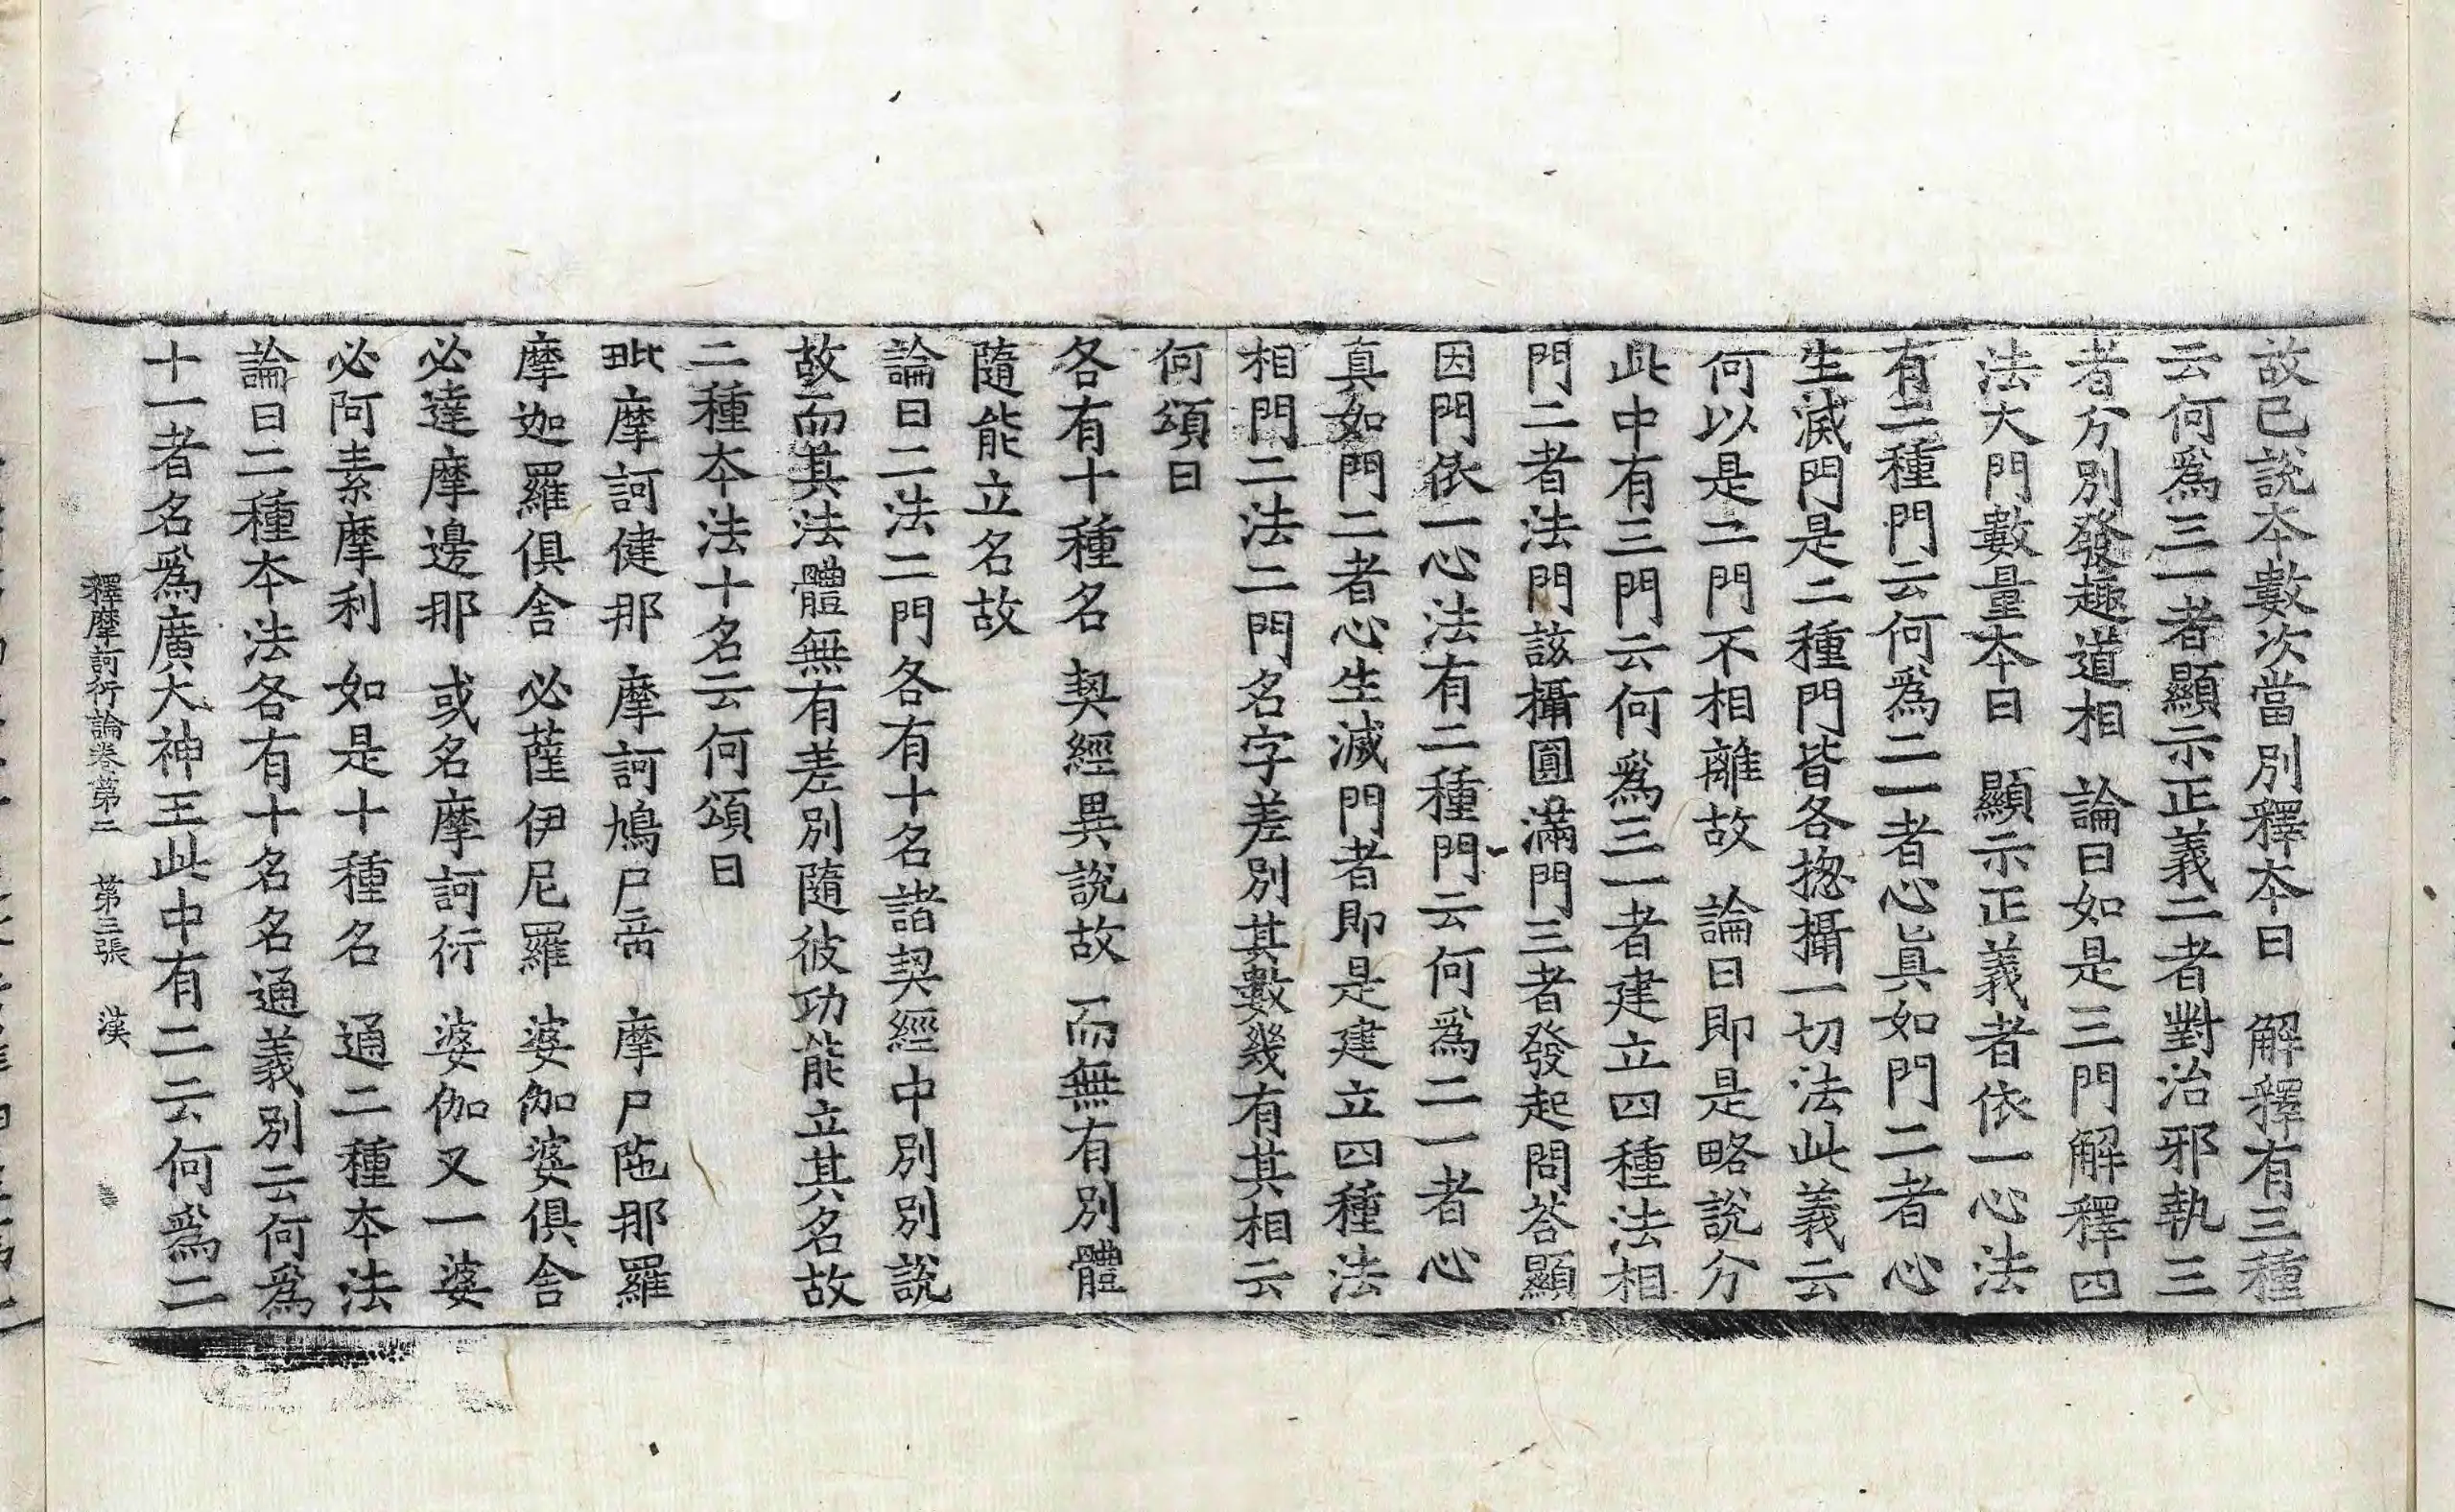 故已說本數次當別釋本曰　解釋有三種
云何爲三一者顯示正義二者對治邪執三
者分別發趣道相　論曰如是三門解釋四
法大門數量本曰　顯示正義者依一心法
有二種門云何爲二一者心眞如門二者心
生滅門是二種門皆各揔攝一切法此義云
何以是二門不相離故　論曰即是略說分
此中有三門云何爲三一者建立四種法相
門二者法門該攝圓滿門三者發起問荅顯
因門依一心法有二種門云何爲二一者心
真如門二者心生滅門者即是建立四種法
相門二法二門名字差別其數幾有其相云
何頌曰
各有十種名　契經異說故　而無有別體
隨能立名故
論曰二法二門各有十名諸契經中別別說
故而其法體無有差別隨彼功能立其名故
二種本法十名云何頌曰
毗摩訶健那　摩訶鳩尸帝　摩尸陁那羅
摩迦羅俱舍　必薩伊尼羅　婆伽婆俱舍
必達摩邊那　或名摩訶衍　婆伽又一婆
必阿素摩利　如是十種名　通二種本法
論曰二種本法各有十名名通義別云何爲
十一者名爲廣大神王此中有二云何爲二
釋摩訶衍論卷第二　第三張　漢